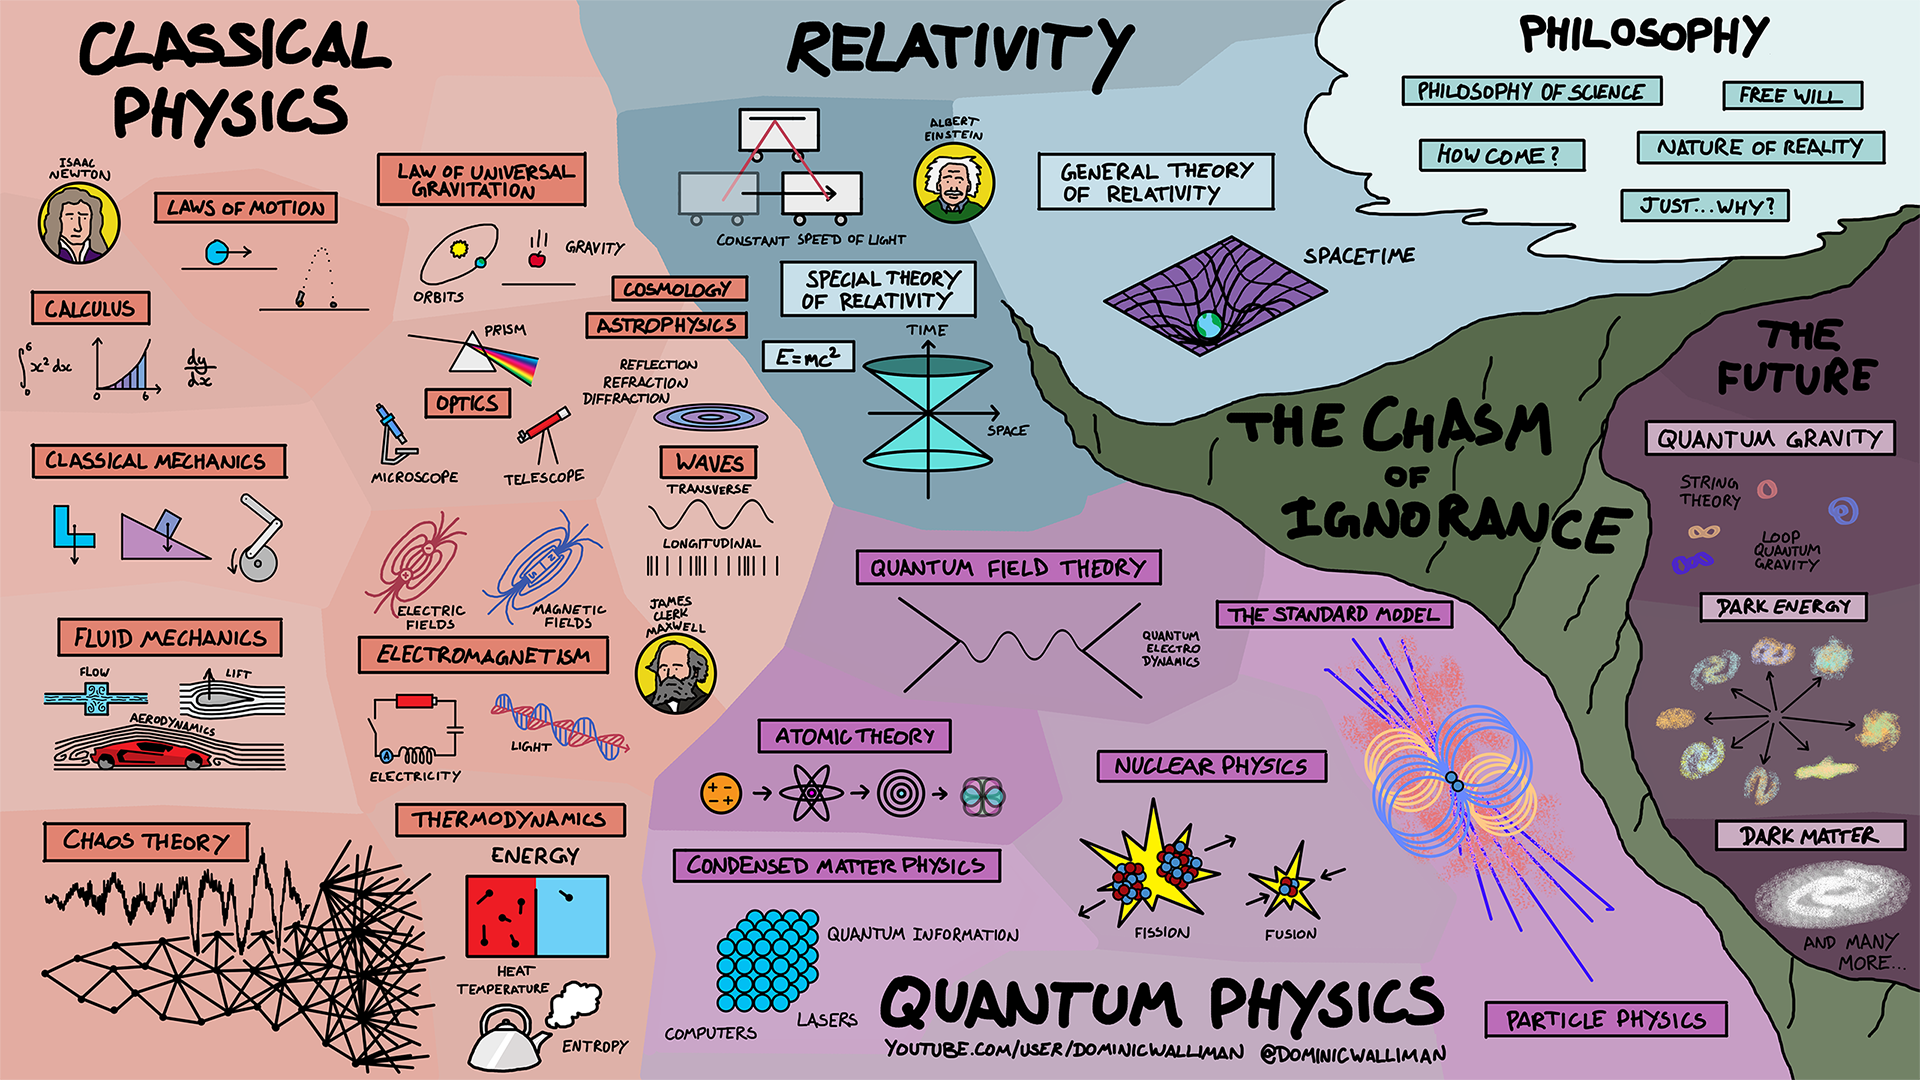 CLASSICAL
PHYSICS
ISAAC
NEWTON
LAWS OF MOTION
LAW OF UNIVERSAL
GRAVITATION
GRAVITY
ORBITS
CALCULUS
∫₀⁶ x² dx
0
6
dy
dx
COSMOLOGY
ASTROPHYSICS
PRISM
OPTICS
MICROSCOPE
TELESCOPE
REFLECTION
REFRACTION
DIFFRACTION
WAVES
TRANSVERSE
LONGITUDINAL
CLASSICAL MECHANICS
ELECTRIC
FIELDS
MAGNETIC
FIELDS
JAMES
CLERK
MAXWELL
FLUID MECHANICS
FLOW
LIFT
AERODYNAMICS
ELECTROMAGNETISM
A
ELECTRICITY
LIGHT
CHAOS THEORY
THERMODYNAMICS
ENERGY
HEAT
TEMPERATURE
ENTROPY
RELATIVITY
CONSTANT SPEED OF LIGHT
ALBERT
EINSTEIN
SPECIAL THEORY
OF RELATIVITY
E=mc²
TIME
SPACE
GENERAL THEORY
OF RELATIVITY
SPACETIME
PHILOSOPHY
PHILOSOPHY OF SCIENCE
FREE WILL
HOW COME?
NATURE OF REALITY
JUST...WHY?
THE CHASM
OF
IGNORANCE
THE
FUTURE
QUANTUM GRAVITY
STRING
THEORY
LOOP
QUANTUM
GRAVITY
DARK ENERGY
DARK MATTER
AND MANY
MORE...
QUANTUM FIELD THEORY
QUANTUM
ELECTRO
DYNAMICS
THE STANDARD MODEL
ATOMIC THEORY
NUCLEAR PHYSICS
FISSION
FUSION
CONDENSED MATTER PHYSICS
QUANTUM INFORMATION
COMPUTERS
LASERS
PARTICLE PHYSICS
QUANTUM PHYSICS
YOUTUBE.COM/USER/DOMINICWALLIMAN @DOMINICWALLIMAN